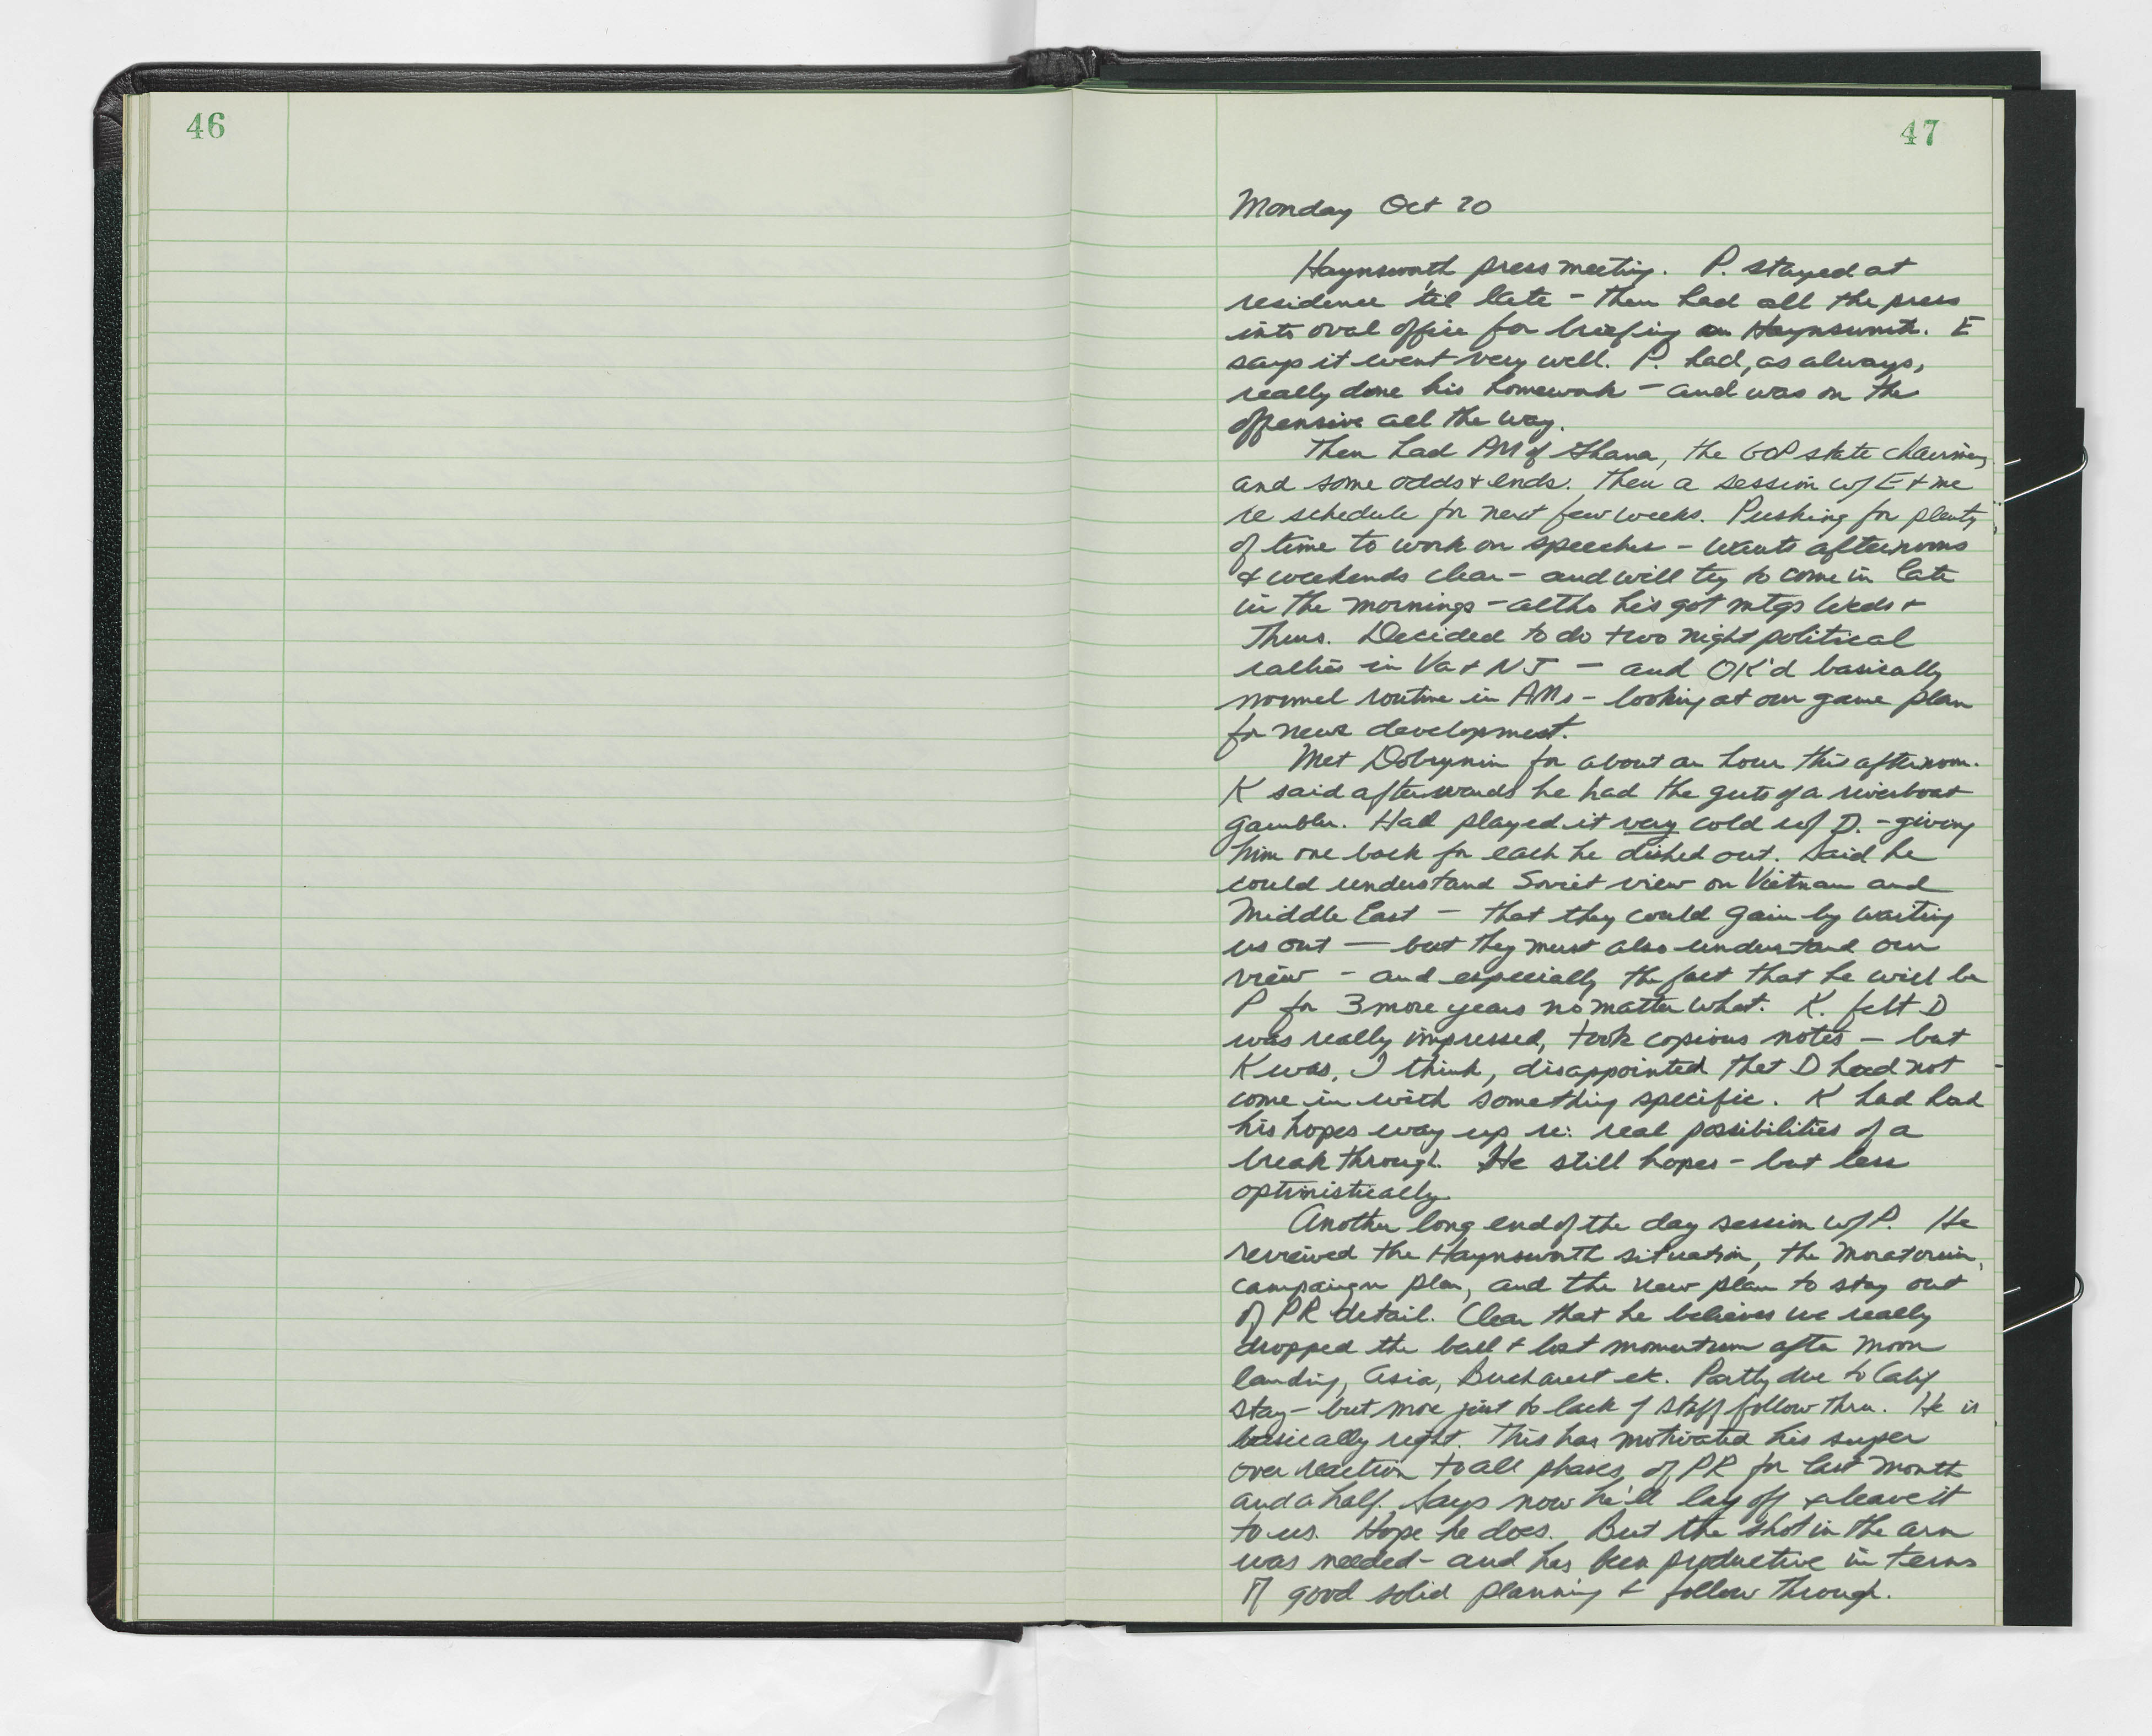 46
47
Monday Oct 20
Haynsworth press meeting. P. stayed at
residence 'til late - then had all the press
into oval office for briefing on Haynsworth. E
says it went very well. P. had, as always,
really done his homework - and was on the
offensive all the way.
Then had PM of Ghana, the GOP state chairmen,
and some odds + ends. Then a session w/ E + me
re schedule for next few weeks. Pushing for plenty
of time to work on speeches - wants afternoons
+ weekends clear - and will try to come in late
in the mornings - altho he's got mtgs Weds +
Thurs. Decided to do two night political
rallies in Va + NJ - and OK'd basically
normal routine in AMs - looking at our game plan
for news development.
Met Dobrynin for about an hour this afternoon.
K said afterwards he had the guts of a riverboat
gambler. Had played it very cold w/ D. - giving
him one back for each he dished out. Said he
could understand Soviet view on Vietnam and
Middle East - that they could gain by waiting
us out - but they must also understand our
view - and especially the fact that he will be
P for 3 more years no matter what. K. felt D
was really impressed, took copious notes - but
K was, I think, disappointed that D had not
come in with something specific. K had had
his hopes way up re: real possibilities of a
break through. He still hopes - but less
optimistically.
Another long end of the day session w/ P. He
reviewed the Haynsworth situation, the Moratorium,
campaign plan, and the new plan to stay out
of PR detail. Clear that he believes we really
dropped the ball + lost momentum after moon
landing, Asia, Bucharest etc. Partly due to Calif
stay - but more just to lack of staff follow thru. He is
basically right. This has motivated his super
over reaction to all phases of PR for last month
and a half. Says now he'll lay off + leave it
to us. Hope he does. But the shot in the arm
was needed - and has been productive in terms
of good solid planning + follow through.